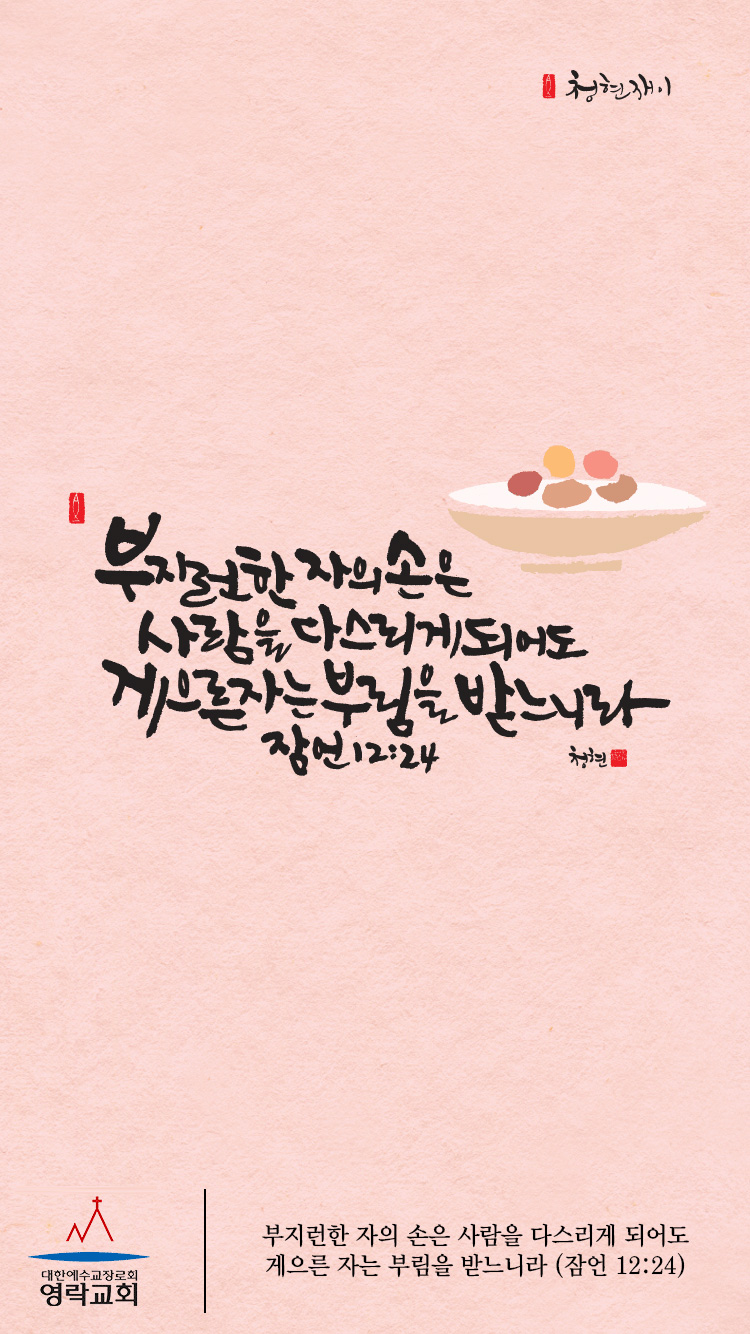 청현재이
부지런한 자의 손은
사람을 다스리게 되어도
게으른 자는 부림을 받느니라
잠언 12:24
청현
대한예수교장로회
영락교회
부지런한 자의 손은 사람을 다스리게 되어도
게으른 자는 부림을 받느니라 (잠언 12:24)